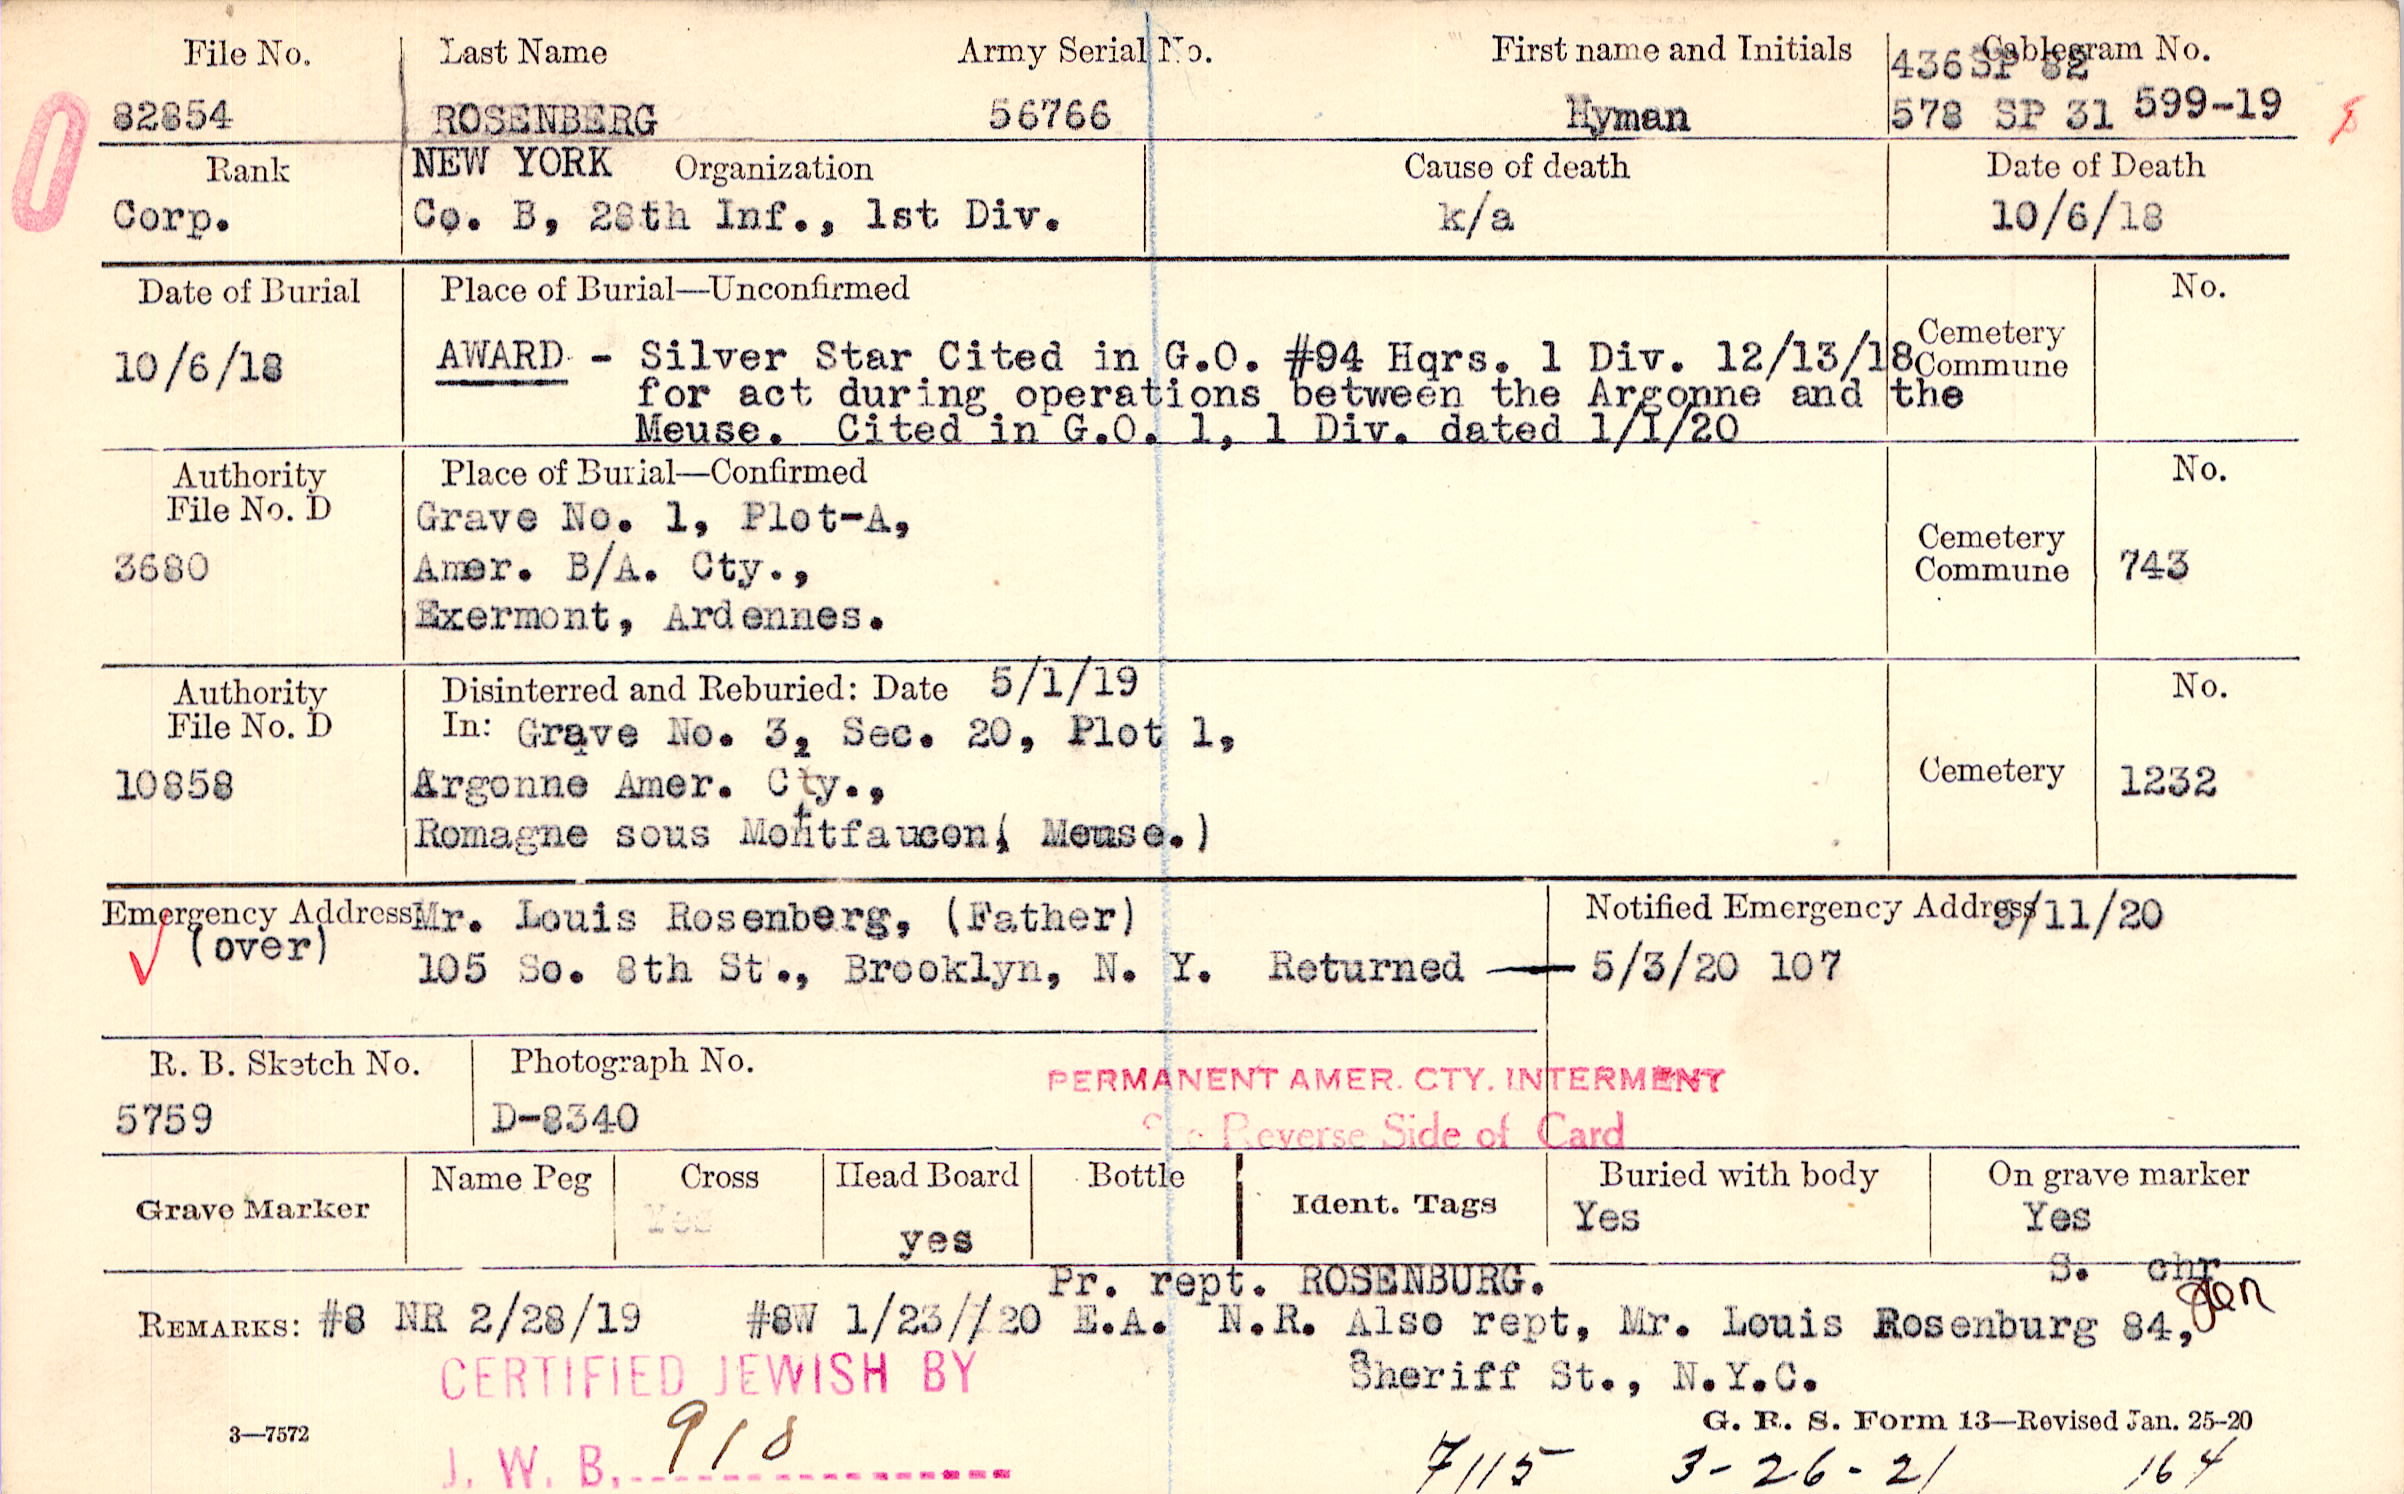 File No. Last Name Army Serial No. First name and Initials Cablegram No.
436 SP 82
82854 ROSENBERG 56766 Hyman 578 SP 31 599-19
Rank NEW YORK Organization Cause of death Date of Death
Corp. Co. B, 28th Inf., 1st Div. k/a 10/6/18
Date of Burial Place of Burial—Unconfirmed No.
10/6/18 AWARD - Silver Star Cited in G.O. #94 Hqrs. 1 Div. 12/13/18 Cemetery Commune
for act during operations between the Argonne and the
Meuse. Cited in G.O. 1, 1 Div. dated 1/1/20
Authority Place of Burial—Confirmed No.
File No. D Grave No. 1, Plot-A,
3680 Amer. B/A. Cty., Cemetery Commune 743
Exermont, Ardennes.
Authority Disinterred and Reburied: Date 5/1/19 No.
File No. D In: Grave No. 3, Sec. 20, Plot 1,
10858 Argonne Amer. Cty., Cemetery 1232
Romagne sous Montfaucon( Meuse.)
Emergency Address Mr. Louis Rosenberg, (Father) Notified Emergency Address /11/20
(over) 105 So. 8th St., Brooklyn, N. Y. Returned — 5/3/20 107
R. B. Sketch No. Photograph No.
PERMANENT AMER. CTY. INTERMENT
5759 D-8340
See Reverse Side of Card
Grave Marker Name Peg Cross Head Board Bottle Ident. Tags Buried with body On grave marker
Yes yes Yes Yes
S. chr
Pr. rept. ROSENBURG.
REMARKS: #8 NR 2/28/19 #8W 1/23/20 E.A. N.R. Also rept, Mr. Louis Rosenburg 84,
Sheriff St., N.Y.C.
CERTIFIED JEWISH BY
J. W. B. 918
3—7572
G. R. S. Form 13—Revised Jan. 25-20
7115 3-26-21 164